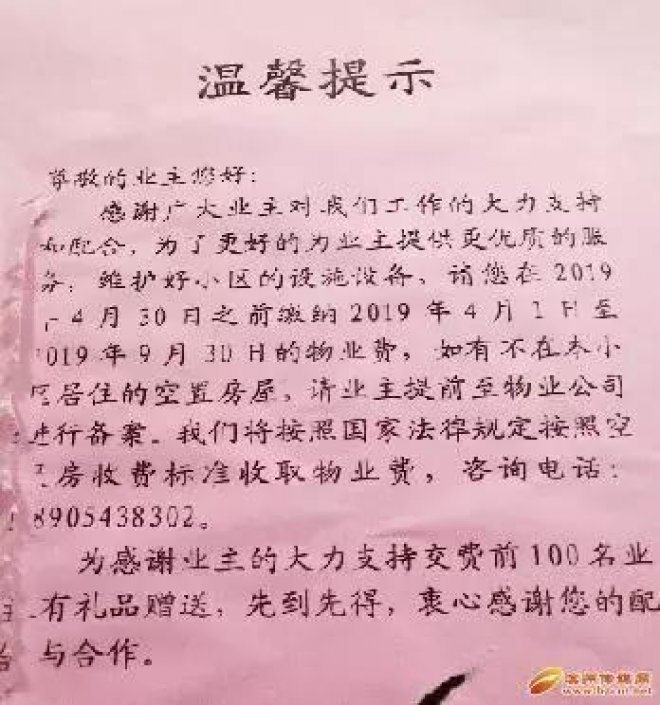 温馨提示
尊敬的业主您好：
感谢广大业主对我们工作的大力支持
和配合，为了更好的为业主提供更优质的服
务，维护好小区的设施设备，请您在 2019
4 月 30 日之前缴纳 2019 年 4 月 1 日至
2019 年 9 月 30 日的物业费，如有不在本小
区居住的空置房屋，请业主提前至物业公司
进行备案。我们将按照国家法律规定按照空
房收费标准收取物业费，咨询电话：
8905438302。
为感谢业主的大力支持交费前 100 名业
主有礼品赠送，先到先得，衷心感谢您的配
与合作。
滨州传媒网